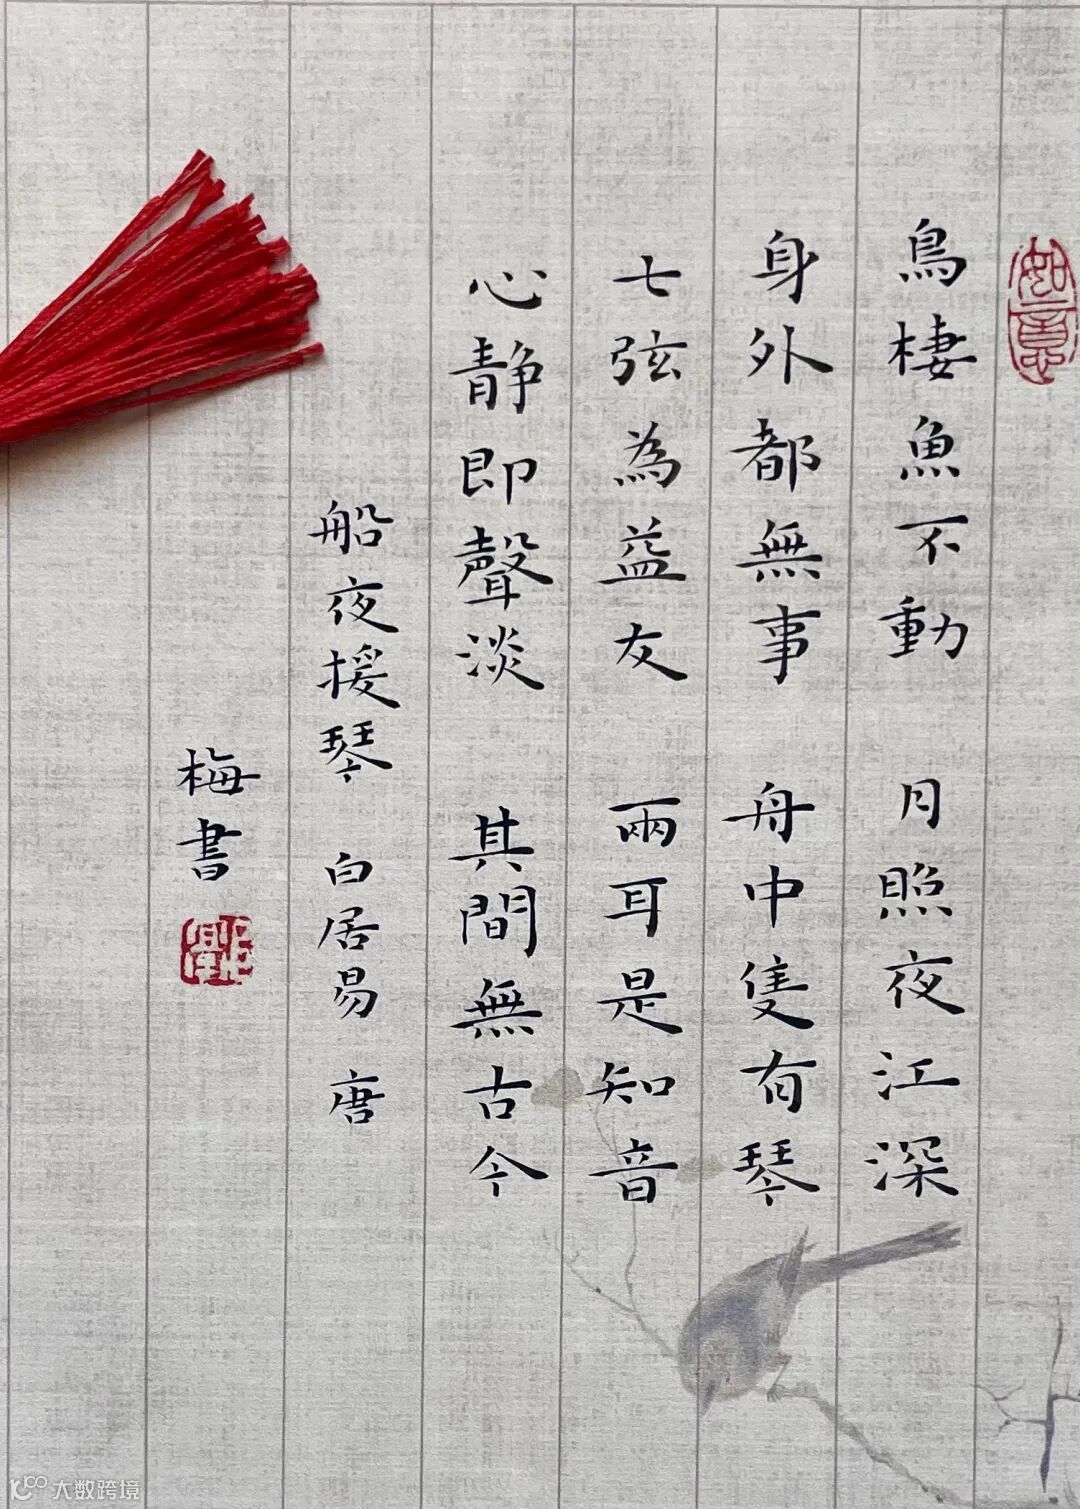 如意
鳥棲魚不動 月照夜江深
身外都無事 舟中隻有琴
七弦為益友 兩耳是知音
心静即聲淡 其間無古今
船夜援琴 白居易 唐
梅書
大数跨境